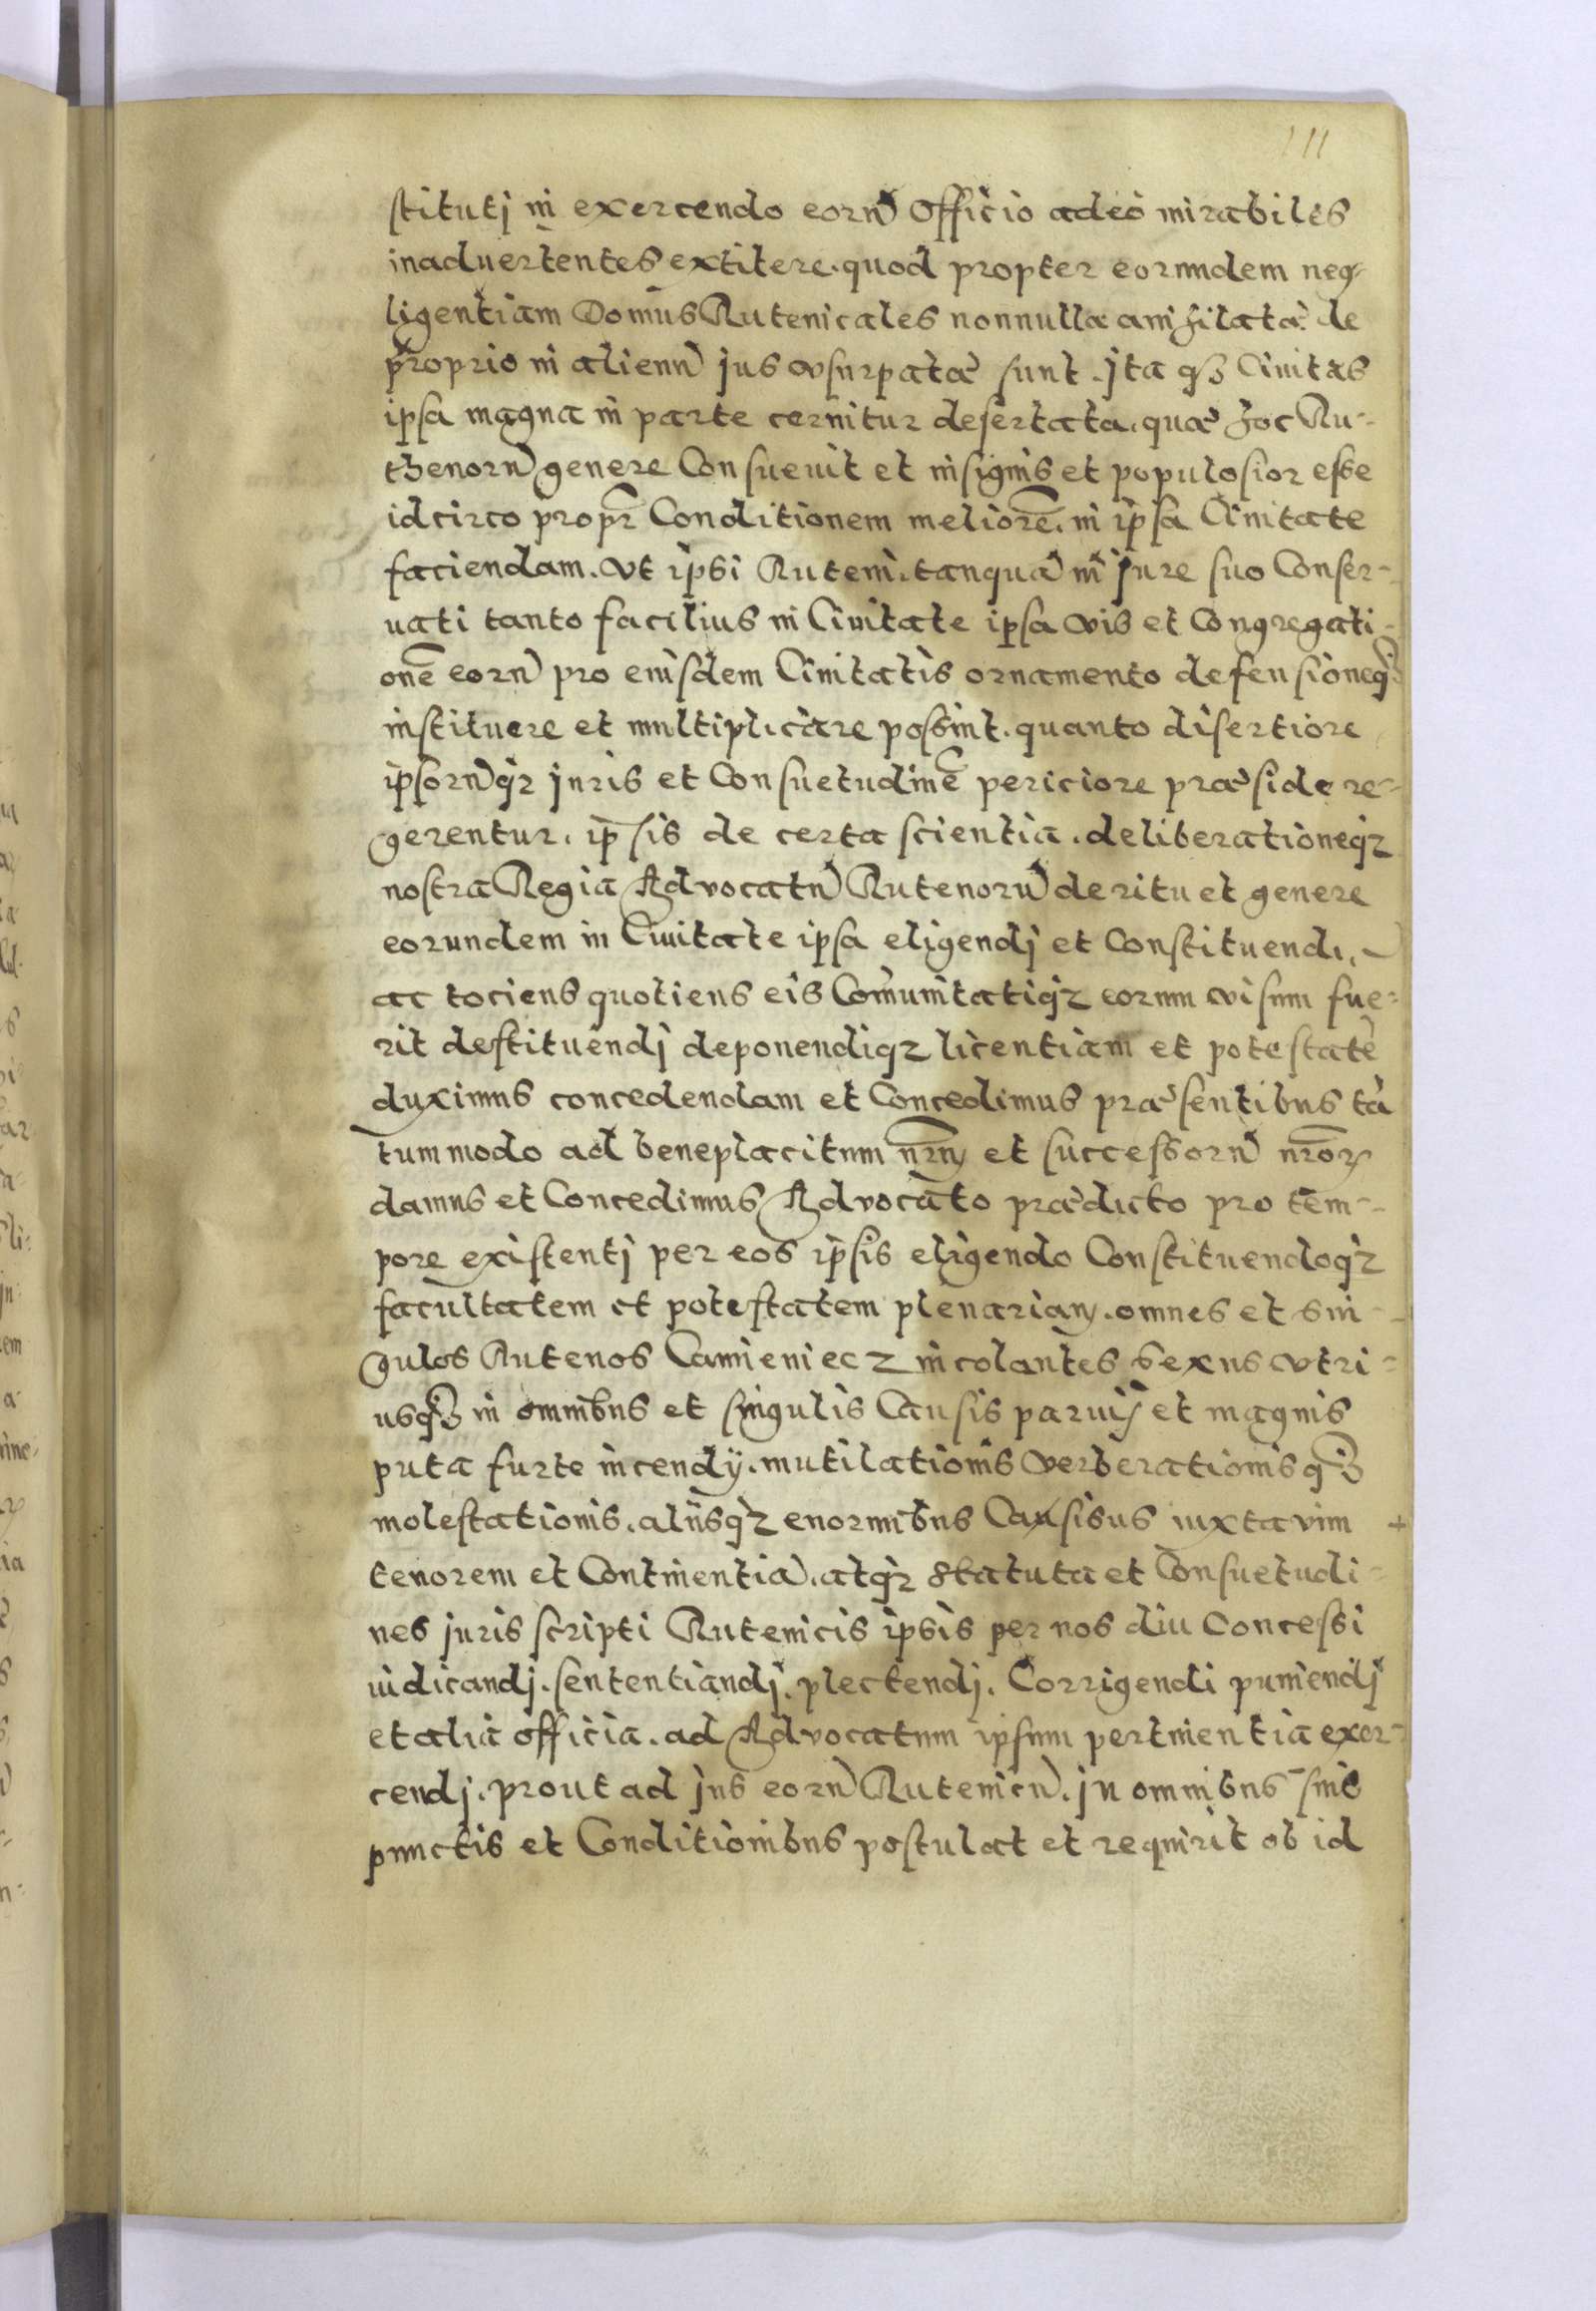 111
stitutj in exercendo eorũ Officio adeo mirabiles
inaduertentes extitere. quod propter eorundem neg-
ligentiam Domus Rutenicales nonnullæ anihilatæ de
proprio in alienũ jus vsurpatæ sunt. jta qȝ Ciuitas
ipsa magna in parte cernitur desertata. quæ hoc Ru-
thenorũ genere Consueuit et insignis et populosior esse
idcirco propr̃ Conditionem meliorẽ. in ipsa Ciuitate
faciendam. vt ipsi Ruteni. tanquã in jure suo Conser-
uati tanto facilius in Ciuitate ipsa vis et Congregati-
onẽ eorũ pro eiusdem Ciuitatis ornamento defensioneqȝ
instituere et multiplicare possint. quanto disertiore
ipsorũqz juris et Consuetudinẽ periciore præside re-
gerentur. ipsis de certa scientia. deliberationeqz
nostra Regia Advocatũ Rutenorũ de ritu et genere
eorundem in Ciuitate ipsa eligendj et Constituendi.
ac tociens quotiens eis Com̃unitatiqz eorum visum fue-
rit destituendj deponendiqz licentiam et potestatẽ
duximus concedendam et Concedimus præsentibus tã
tummodo ad beneplacitum nr̃m et successorũ nr̃oꝝ
damus et Concedimus Advocato prædicto pro tem-
pore existentj per eos ipsis eligendo Constituendoqz
facultatem et potestatem plenariam. omnes et sin-
gulos Rutenos Camieniecz incolantes sexus vtri-
usqȝ in omnibus et singulis Causis paruis et magnis
puta furte incendÿ. mutilationis verberationisqȝ
molestationis. aliisqz enormibus Causibus iuxta vim +
tenorem et Continentiã. atqz statuta et Consuetudi-
nes juris scripti Rutenicis ipsis per nos diu Concessi
iudicandj. sententiandj. plectendj. Corrigendi puniendj
et alia officia. ad Advocatum ipsum pertinentia exer-
cendj. prout ad jus eorũ Rutenicũ. jn omnibus suis
punctis et Conditionibus postulat et requirit ob id